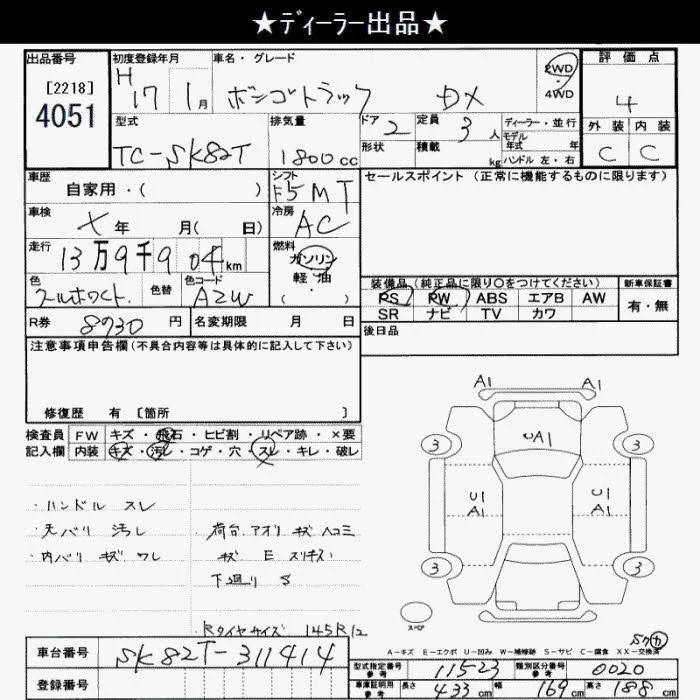 ★ディーラー出品★
出品番号 初度登録年月 車名・グレード 評価点
[2218]
4051
H 17 1月 ボンゴトラック DX 2WD 4WD 4
型式 排気量 ドア 2 定員 3人 ディーラー・並行 外装 内装
モデル年式 年
TC-SK82T 1800cc 形状 積載 kg ハンドル 左・右 C C
車歴 自家用・( ) シフト F5MT セールスポイント(正常に機能するものに限ります)
車検 年 月( 日) 冷房 AC
走行 13万9千904km 燃料 ガソリン・軽油( )
色 クールホワイト 色替 色コード A2W
装備品(純正品に限り○をつけてください) 新車保証書
PS PW ABS エアB AW 有・無
SR ナビ TV カワ
R券 8730円 名変期限 月 日 後日品
注意事項申告欄(不具合内容等は具体的に記入して下さい)
修復歴 有 [箇所 ]
検査員 FW キズ・飛石・ヒビ割・リペア跡・×要
記入欄 内装 キズ・汚レ・コゲ・穴・スレ・キレ・破レ
・ハンドル スレ
・天バリ 汚レ
・内バリ キズ ワレ
・荷台、アオリ キズ ヘコミ
キズ E スリキズ
下廻り S
・Rタイヤサイズ 145R12
A1 A1
UA1
3 3
U1 U1
A1 A1
3 3
スペア
A-キズ E-エクボ U-凹み W-補修跡 S-サビ C-腐食 XX-交換済
車台番号 SK82T-311414
登録番号
型式指定番号 参考 11523 類別区分番号 参考 0020
車庫証明用 参考 長さ 433cm 幅 169cm 高さ 188cm